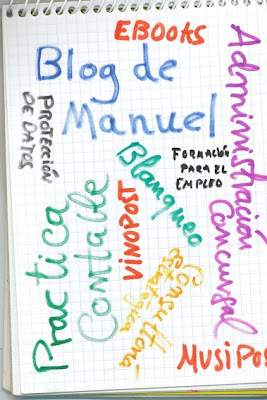 EBOOKS
Blog de
Manuel
PROTECCIÓN
DE DATOS
Administración
Concursal
FORMACIÓN
PARA EL
EMPLEO
Blanqueo
Practica
Contable
VINOPOST
Consultoria
estratégica
MUSIPOS